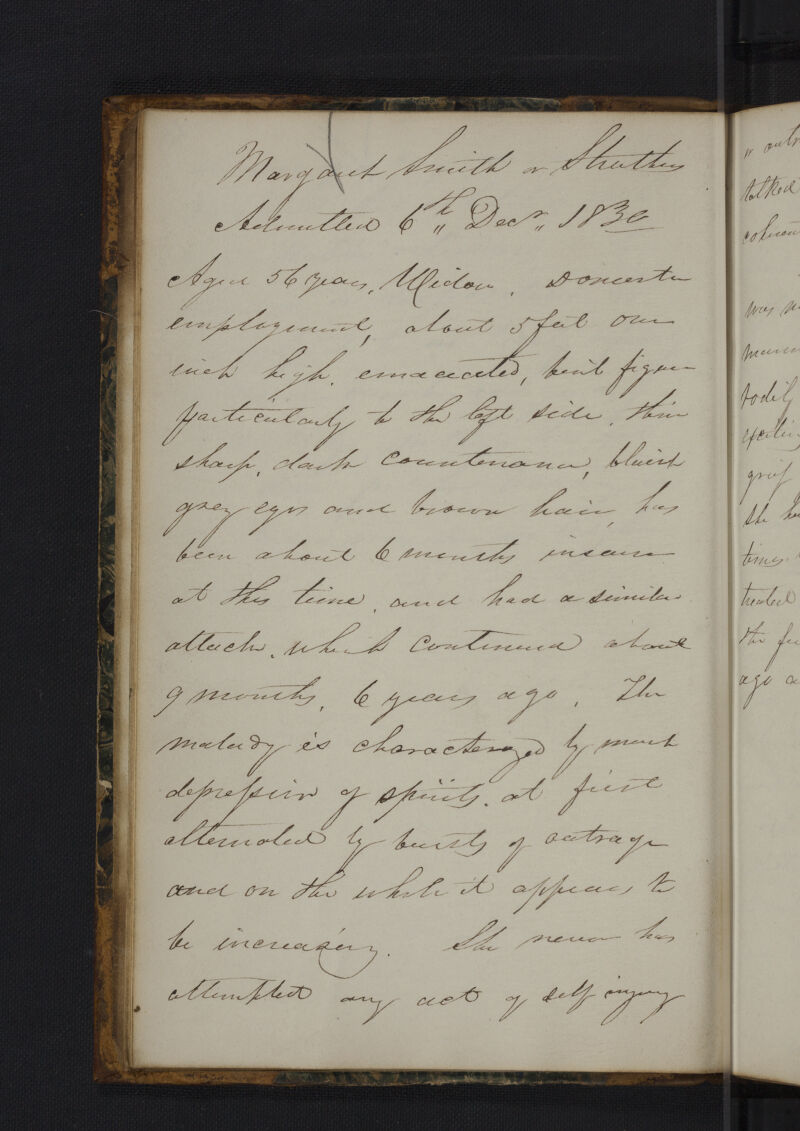 Margaret Smith or Struthers
Admitted 6th Decr 1830
Aged 56 years, Widow, Domestic
employment, about 5 feet one
inch high, emaciated, bent figure
particularly to the left side, thin
sharp, dark countenance, bluish
grey eyes and brown hair, has
been about 6 months insane
at this time, and had a similar
attack, which continued about
9 months, 6 years ago. The
malady is characterized by much
depression of spirits, at first
alternated by bursts of outrage
and on the whole it appears to
be increasing. She never has
attempted any act of self injury
or
talked
was
bodily
grief
she
times
treated
the
ago a